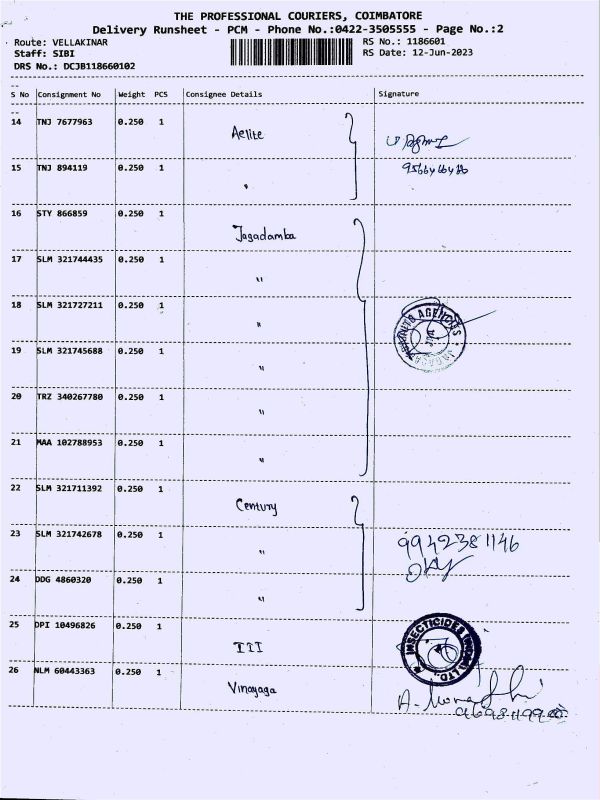 THE PROFESSIONAL COURIERS, COIMBATORE
Delivery Runsheet - PCM - Phone No.:0422-3505555 - Page No.:2
Route: VELLAKINAR RS No.: 1186601
Staff: SIBI RS Date: 12-Jun-2023
DRS No.: DCJB118660102
--
S No Consignment No Weight PCS Consignee Details Signature
--
14 TNJ 7677963 0.250 1 Aelite
15 TNJ 894119 0.250 1 "
16 STY 866859 0.250 1 Jagadamba
17 SLM 321744435 0.250 1 "
18 SLM 321727211 0.250 1 "
AUTO AGENCIES
19 SLM 321745688 0.250 1 "
20 TRZ 340267780 0.250 1 "
21 MAA 102788953 0.250 1 "
22 SLM 321711392 0.250 1 Century
23 SLM 321742678 0.250 1 " 9942381146
24 DDG 4860320 0.250 1 "
25 DPI 10496826 0.250 1 III
INSECTICIDES LTD.
26 NLM 60443363 0.250 1 Vinayaga